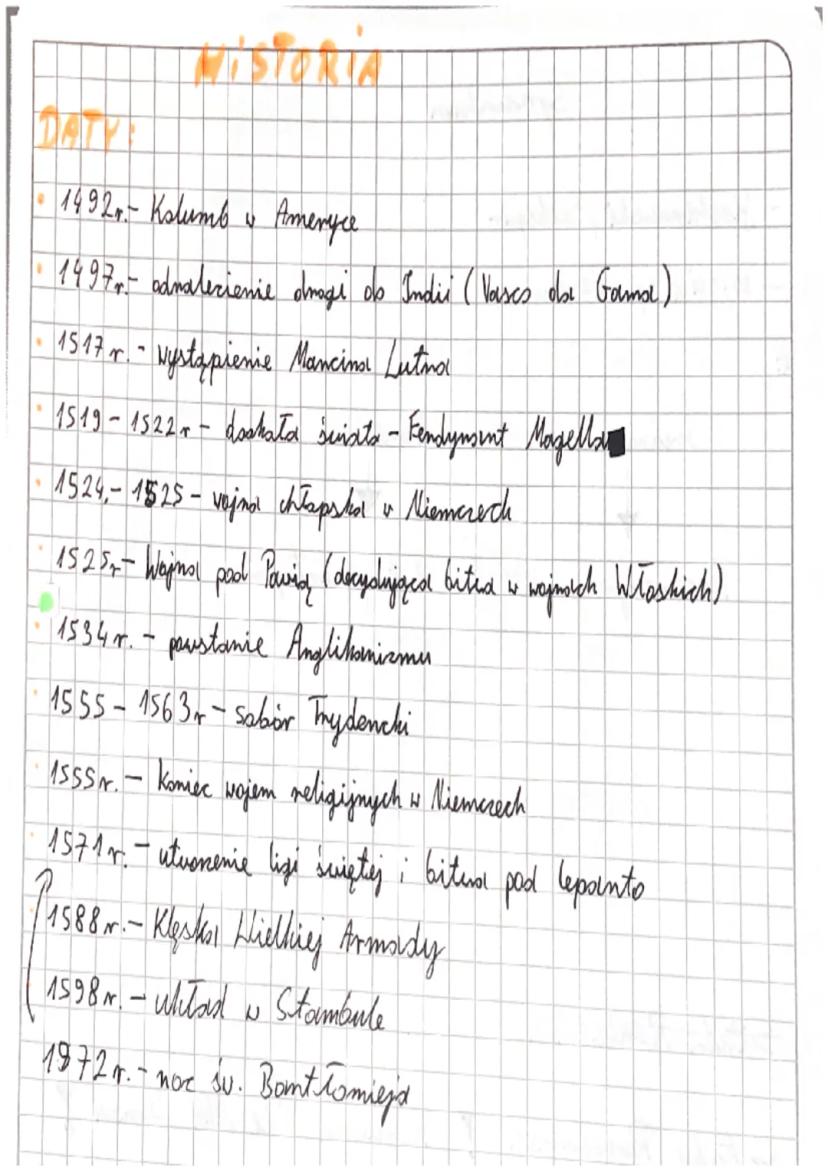 HiSTORIA
DATY:
• 1492r.- Kolumb w Ameryce
• 1497r.- odnalezienie drogi do Indii (Vasco da Gama)
• 1517r.- wystąpienie Marcina Lutra
• 1519-1522r - dookoła świata - Ferdynant Magella
• 1524.- 1525 - wojna chłopska w Niemczech
• 1525r- Wojna pod Pawią (decydująca bitwa w wojnach Włoskich)
• 1534r. - powstanie Anglikanizmu
• 1555 - 1563r - sobór Trydencki
• 1555r. - Koniec wojem religijnych w Niemczech
• 1571r. - utworzenie ligi świętej i bitwa pod lepanto
1588r. - Klęska Wielkiej Armady
1598r. - układ w Stambule
1972r. - noc św. Bartłomieja